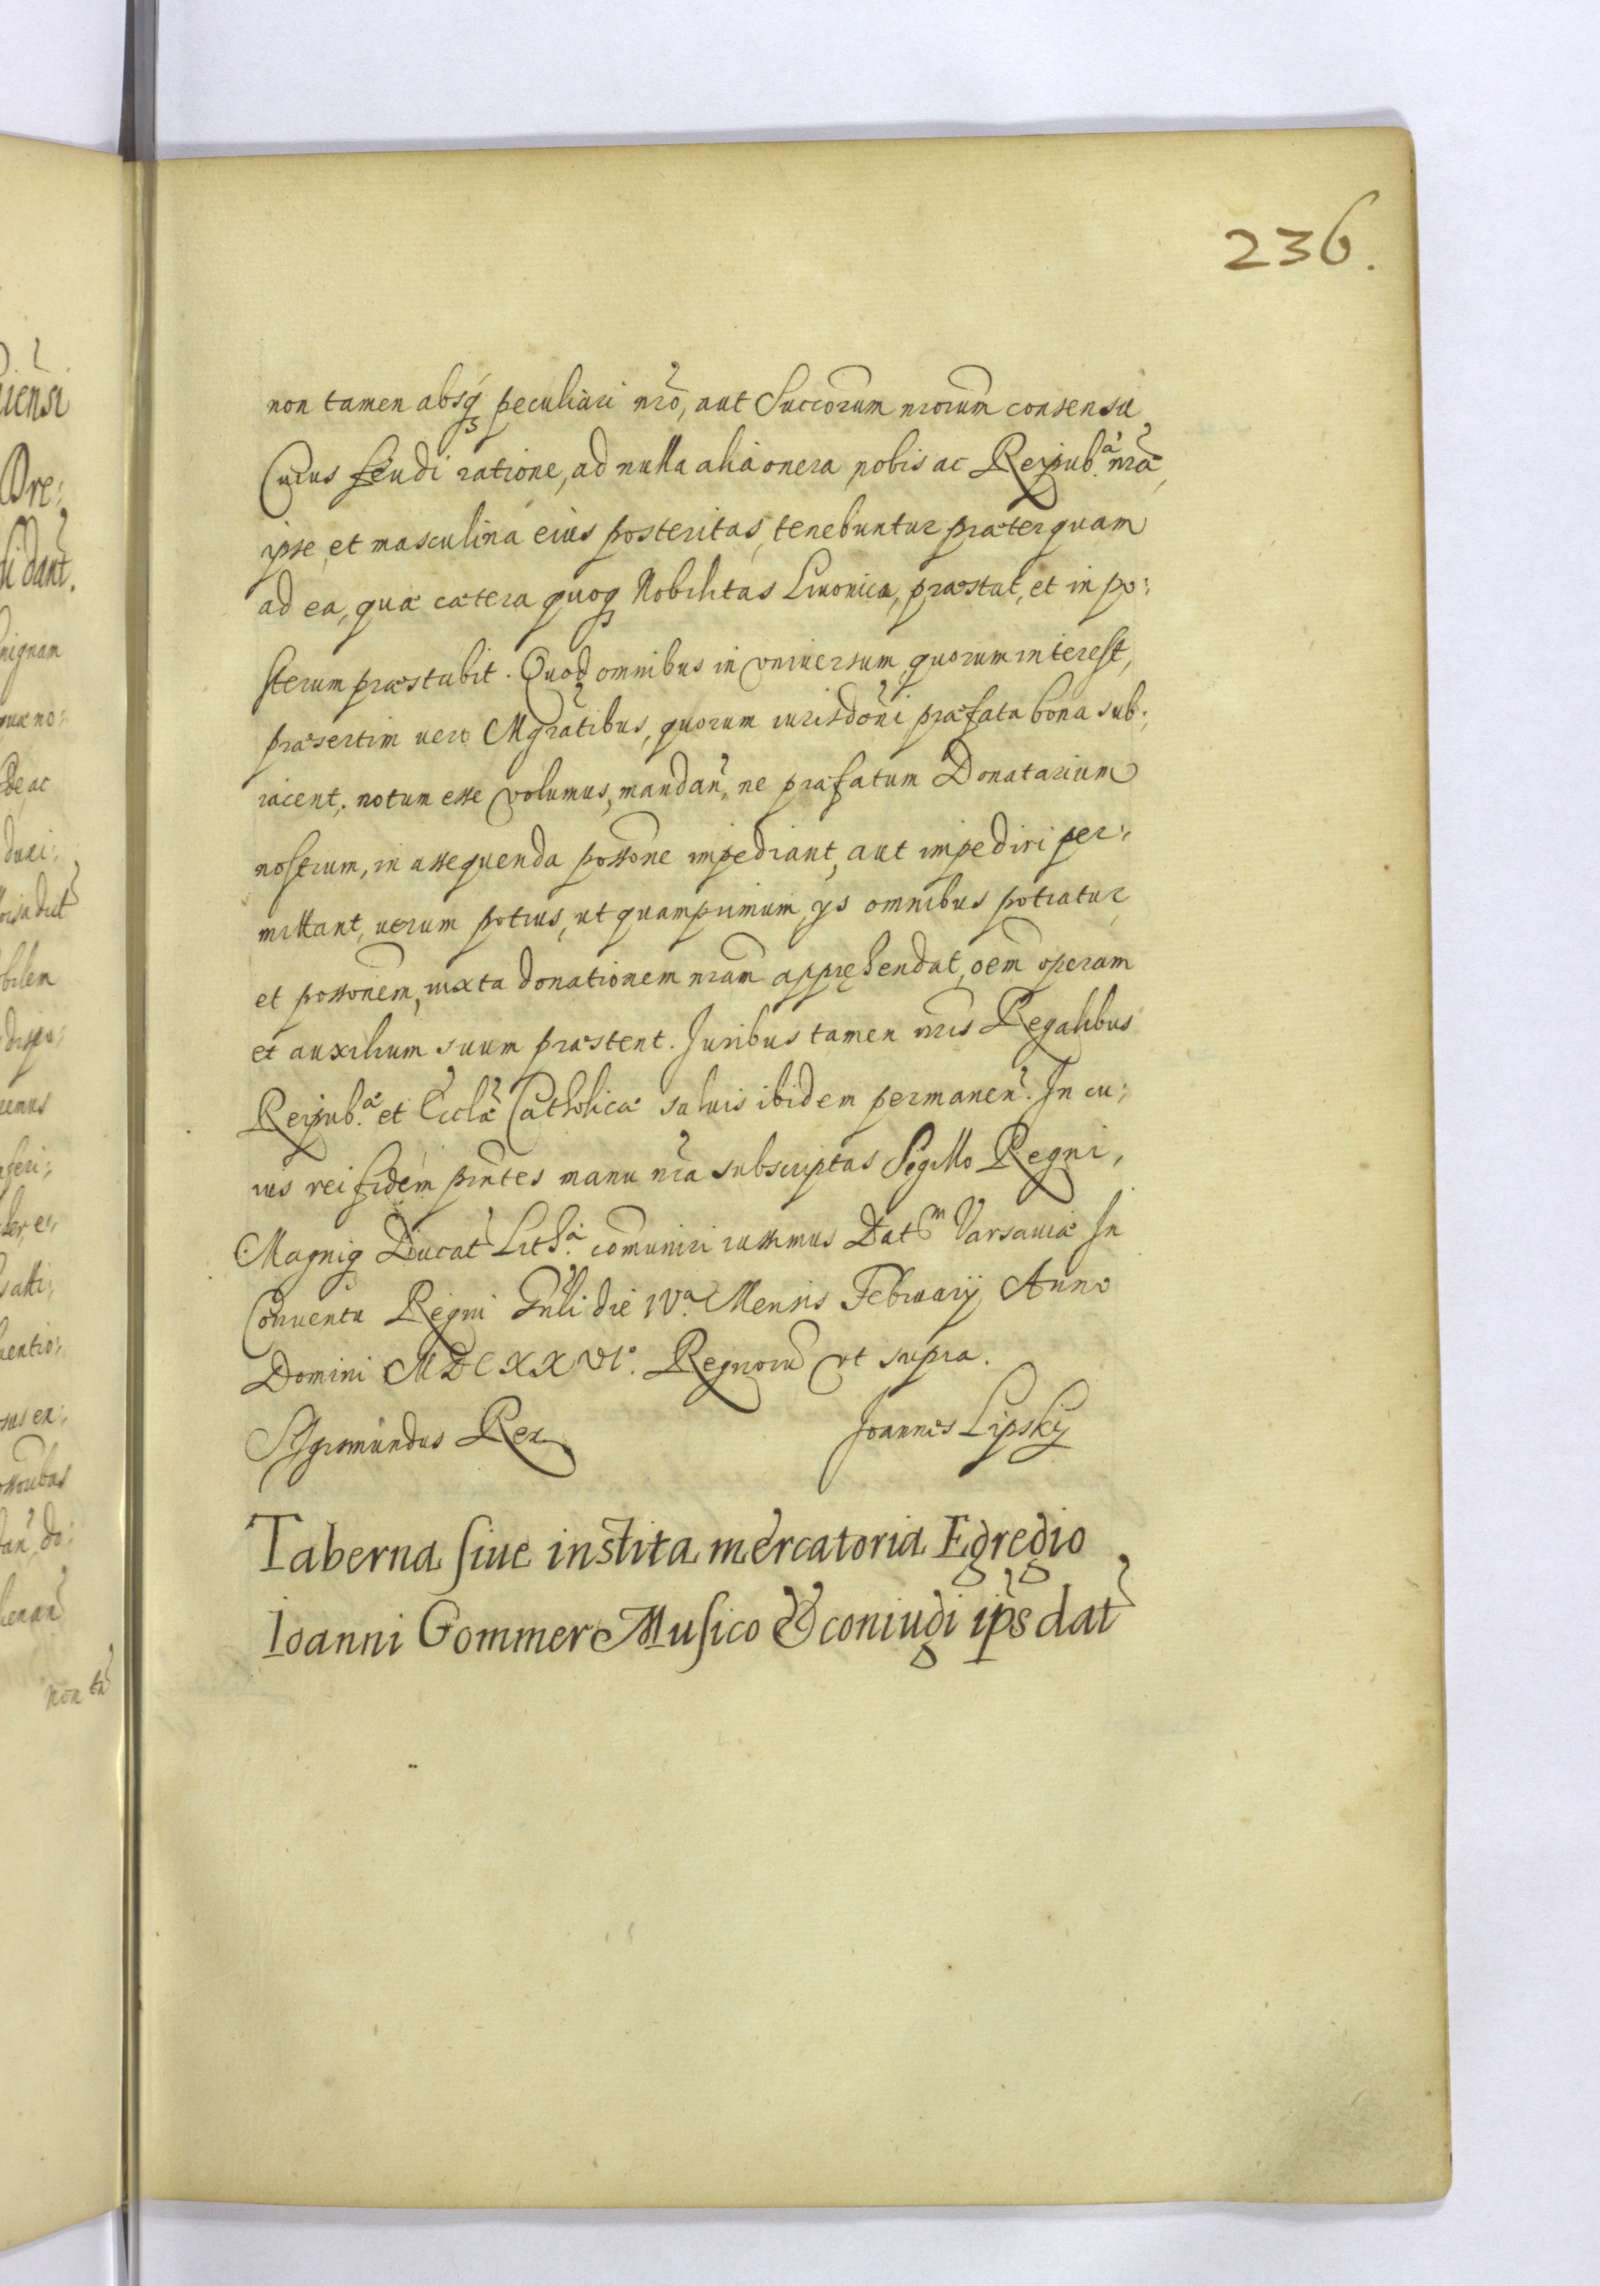 236.
non tamen absq́ꝫ peculiari nr̃o, aut Succor̃um nror̃um consensu
Cuius feudi ratione, ad nulla alia onera nobis ac Reipub.ᵃ nr̃æ,
ipse, et masculina eius posteritas, tenebuntur præterquam
ad ea, quæ cætera quoqꝫ Nobilitas Liuonica, præstat, et in po:
sterum præstabit. Quod omnibus in vniuersum quorum interest,
præsertim uero Mgr̃atibus, quorum iurisdõni præfata bona sub:
iacent, notum esse volumus, mandañ, ne præfatum Donatarium
nostrum, in assequenda possõne impediant, aut impediri per:
mittant, uerum potius, ut quamprimum ijs omnibus potiatur,
et possõnem, iuxta donationem nram apprehendat, oẽm operam
et auxilium suum præstent. Juribus tamen nr̃is Regalibus
Reipub.æ et Eccl̃æ Catholicæ saluis ibidem permaneñ. In cu:
ius rei fidem pr̃ntes manu nr̃a subscriptas Sigillo Regni,
Magniqꝫ Ducat̃ Lith.æ com̃uniri iussimus Datᵐ Varsauiæ In
Conuentu Regni Gñli die IVᵃ. Mensis Februarij Anno
Domini MDCXXVIº. Regnorũ vt supra.
Sigismundus Rex Joannes Lipskij
Taberna siue instita mercatoria Egregio
Ioanni Gommer Musico & coniugi ip̃s dat̃
iensi
Bre:
dant.
nignam
quæ no:
ac
bilem
feri:
non tã